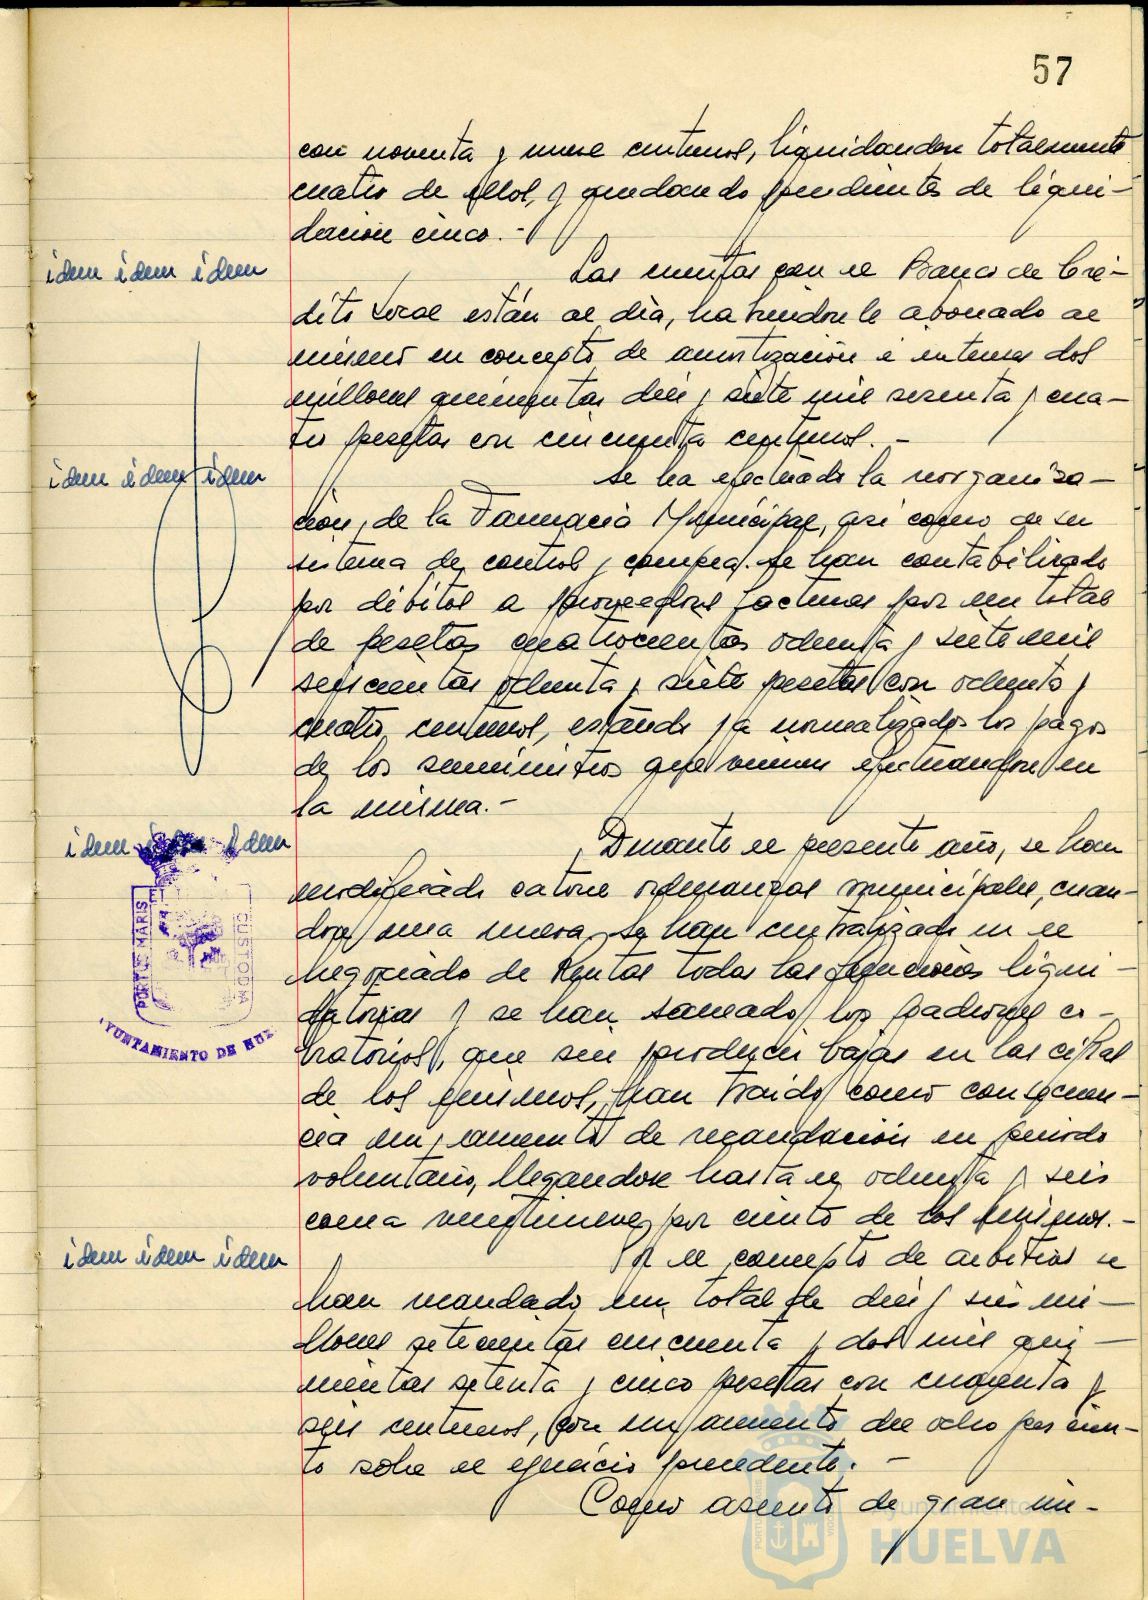 57
con noventa y nueve centimos, liquidandose totalmente
cuatro de ellos, y quedando pendientes de liqui-
dación cinco.-
idem idem idem
Las cuentas con el Banco de Cré-
dito Local están al dia, habiendosele abonado al
mismo en concepto de amortización e intereses dos
millones quinientas diez y siete mil sesenta y cua-
tro pesetas con cincuenta centimos.-
idem idem idem
Se ha efectuado la reorganiza-
ción, de la Farmacia Municipal, asi como de su
sistema de control y compras. Se han contabilizado
por débitos a proveedores facturas por un total
de pesetas cuatrocientas ochenta y siete mil
seiscientas ochenta y siete pesetas con ochenta y
cuatro centimos, estando ya normalizados los pagos
de los suministros que vienen efectuandose en
la misma.-
idem idem idem
Durante el presente año, se han
modificado catorce ordenanzas municipales, crean-
dose una nueva, se han centralizado en el
Negociado de Rentas todas las funciones liqui-
datorias y se han saneado los padrones co-
bratorios, que sin producir bajas en las cifras
de los mismos, han traido como consecuen-
cia un aumento de recaudación en periodo
voluntario, llegandose hasta el ochenta y seis
coma veintinueve por ciento de los mismos.-
idem idem idem
Por el concepto de arbitrios se
han recaudado un total de diez y seis mi-
llones setecientas cincuenta y dos mil qui-
nientas setenta y cinco pesetas con cincuenta y
seis centimos, con un aumento del ocho por cien-
to sobre el ejercicio precedente.-
Como asunto de gran im-
PORTUS MARIS
CUSTODIA
AYUNTAMIENTO DE HUE
Ayuntamiento de
HUELVA